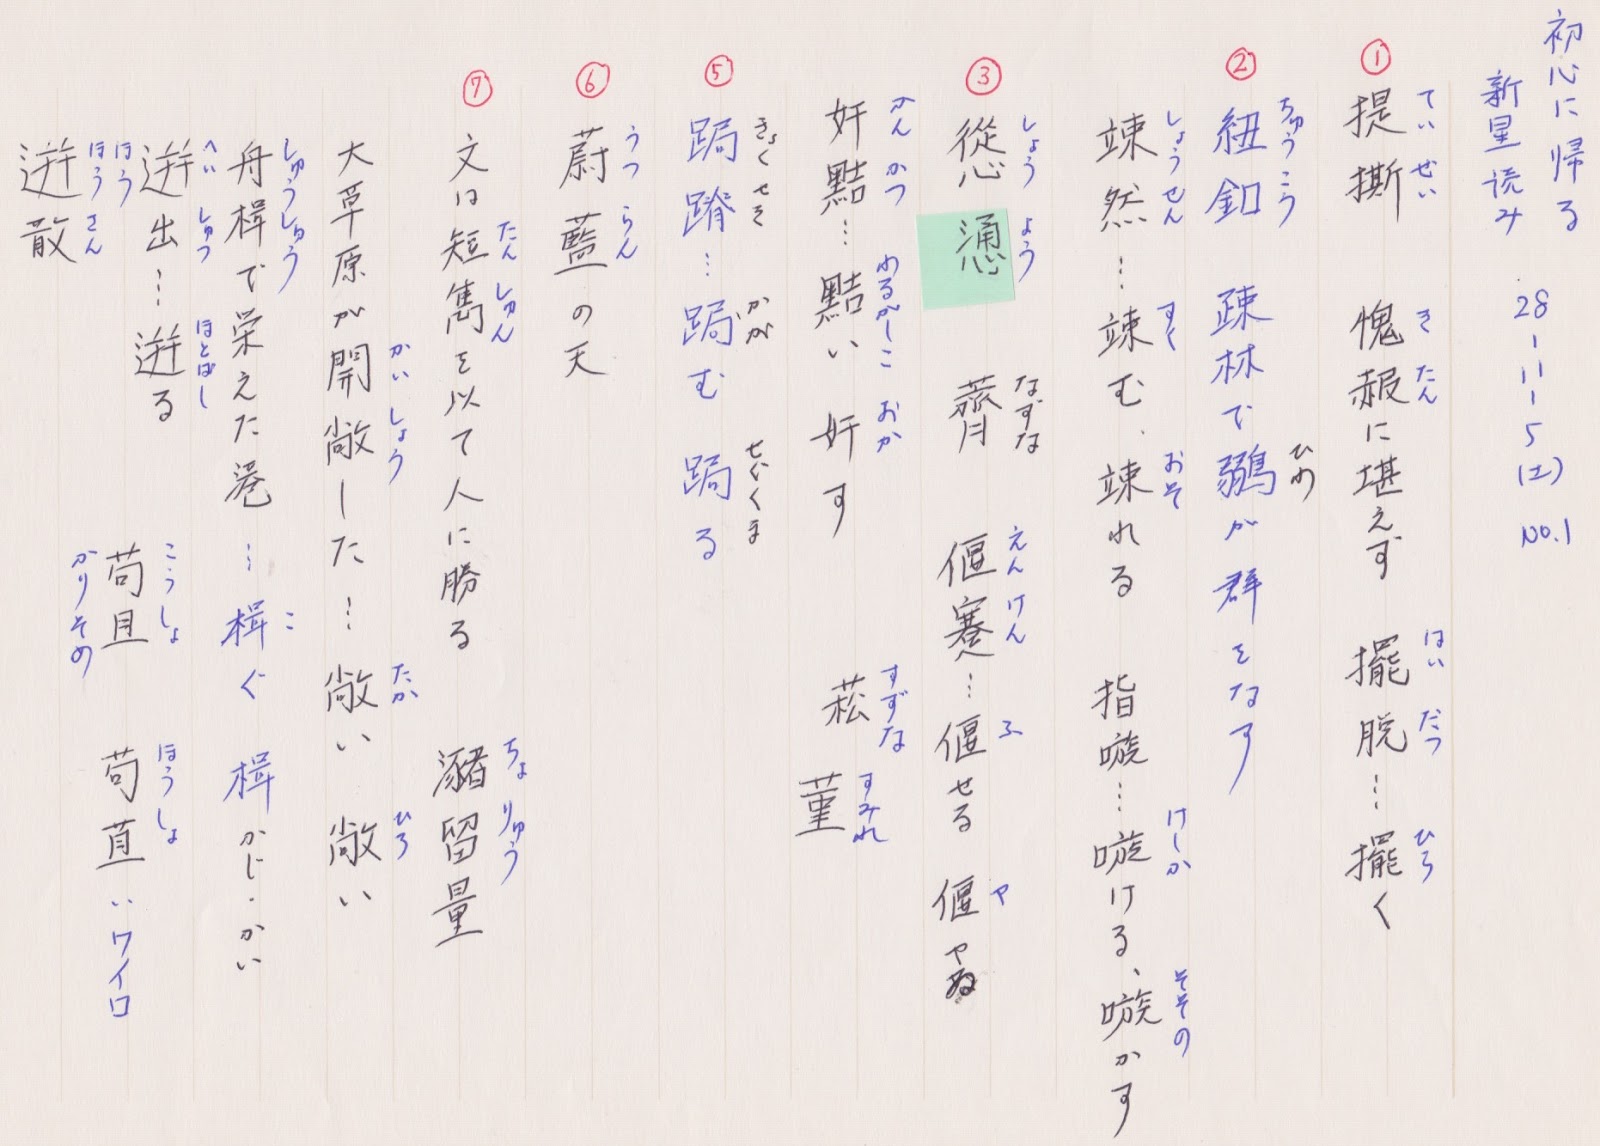 初心に帰る
新星読み 28-11-5(土) No.1
てい ぜい き たん はい だつ ひら
① 提撕 愧赧に堪えず 擺脱…擺く
ちゅう こう ひわ
② 紐釦 疎林で鶸が群をなす
しょう ぜん すく おそ けしか そその
竦然…竦む、竦れる 指嗾…嗾ける、嗾かす
しょう よう なずな えん けん ふ や
③ 慫慂 薺 偃蹇…偃せる 偃やめる
かん かつ わるがしこ おか すずな すみれ
奸黠…黠い 奸す 菘 菫
きょく せき かが せぐくま
⑤ 跼蹐…跼む 跼る
うつ らん
⑥ 蔚藍の天
たん しゅん ちょ りゅう
⑦ 文は短雋を以て人に勝る 瀦留量
かい しょう たか ひろ
大草原が開敞した…敞い 敞い
しゅうしゅう こ
舟楫で栄えた港…楫ぐ 楫かじ・かい
へい しゅつ ほとばし こうしょ ほうしょ
ほう
迸出…迸る 苟且 苞苴…ワイロ
ほう さん かりそめ
迸散